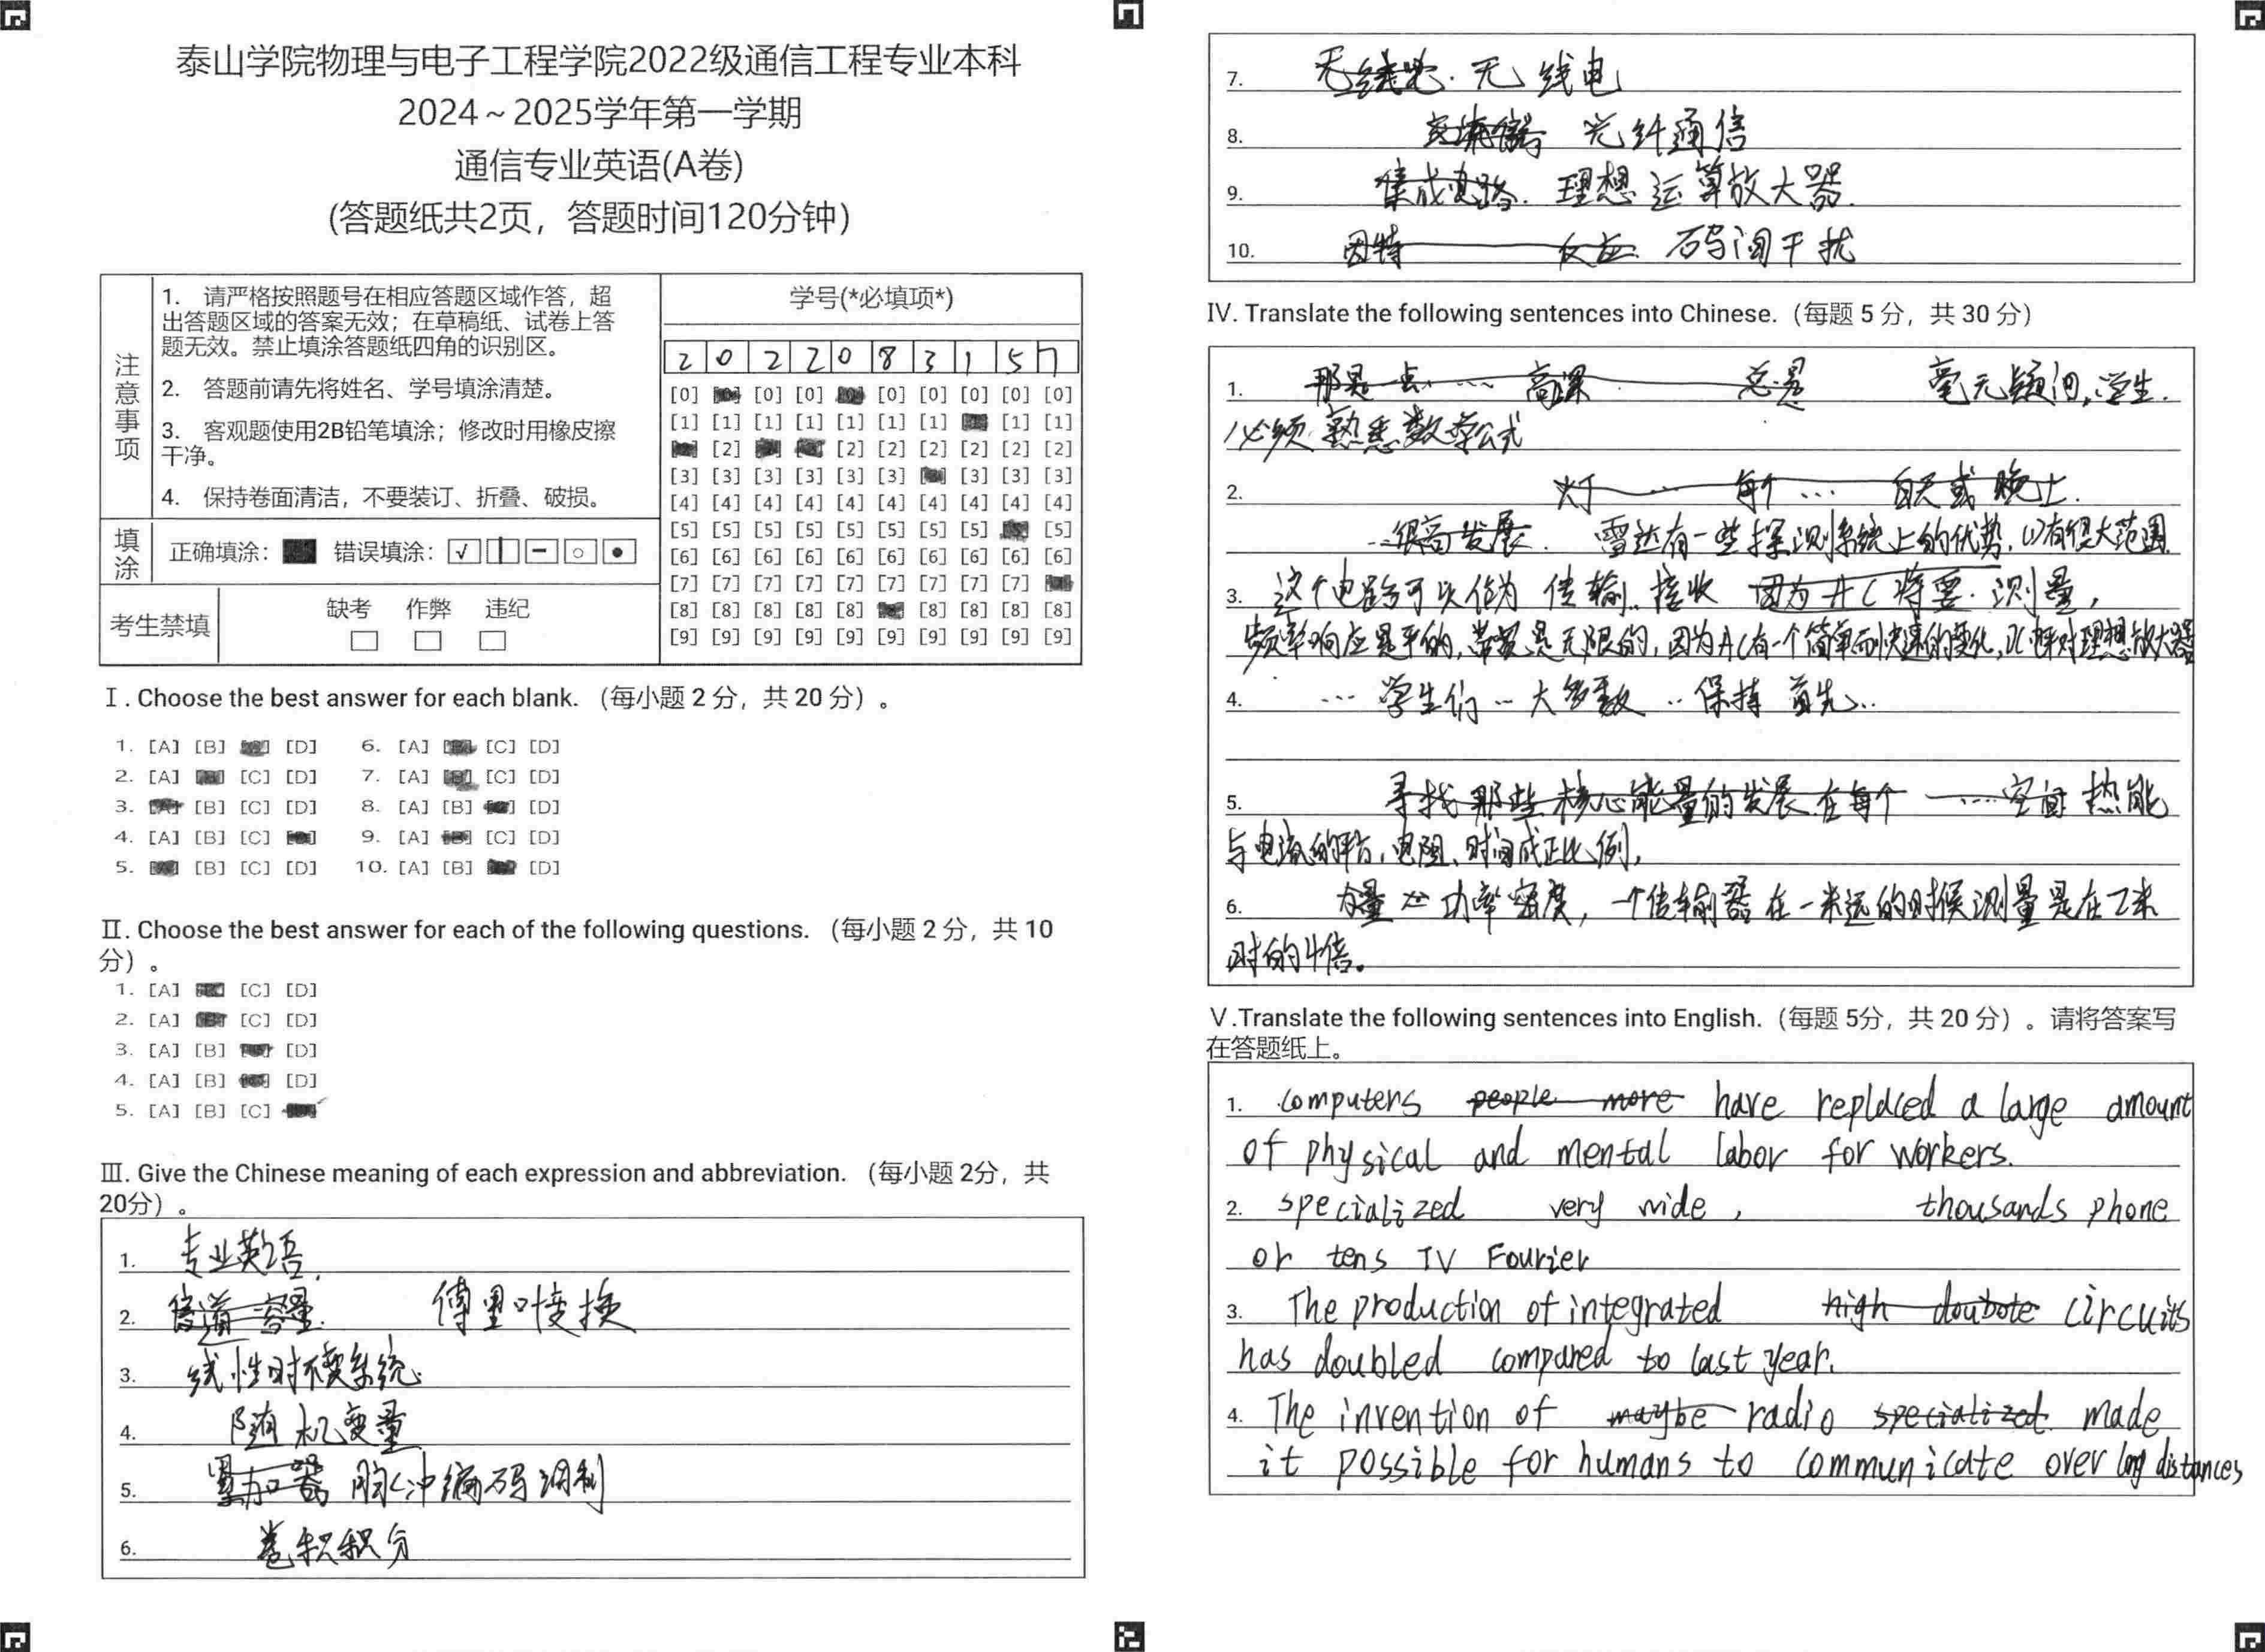 泰山学院物理与电子工程学院2022级通信工程专业本科
2024~2025学年第一学期
通信专业英语(A卷)
(答题纸共2页，答题时间120分钟)
注意事项
1. 请严格按照题号在相应答题区域作答，超
出答题区域的答案无效；在草稿纸、试卷上答
题无效。禁止填涂答题纸四角的识别区。
2. 答题前请先将姓名、学号填涂清楚。
3. 客观题使用2B铅笔填涂；修改时用橡皮擦
干净。
4. 保持卷面清洁，不要装订、折叠、破损。
填涂 正确填涂： 错误填涂：
考生禁填 缺考 作弊 违纪
学号(*必填项*)
2 0 2 2 0 8 3 1 5 7
[0] [0] [0] [0] [0] [0] [0] [0]
[1] [1] [1] [1] [1] [1] [1] [1] [1]
[2] [2] [2] [2] [2] [2] [2]
[3] [3] [3] [3] [3] [3] [3] [3] [3]
[4] [4] [4] [4] [4] [4] [4] [4] [4] [4]
[5] [5] [5] [5] [5] [5] [5] [5] [5]
[6] [6] [6] [6] [6] [6] [6] [6] [6] [6]
[7] [7] [7] [7] [7] [7] [7] [7] [7]
[8] [8] [8] [8] [8] [8] [8] [8] [8]
[9] [9] [9] [9] [9] [9] [9] [9] [9] [9]
Ⅰ. Choose the best answer for each blank. （每小题 2 分，共 20 分）。
1. [A] [B] [D] 6. [A] [C] [D]
2. [A] [C] [D] 7. [A] [C] [D]
3. [B] [C] [D] 8. [A] [B] [D]
4. [A] [B] [C] 9. [A] [C] [D]
5. [B] [C] [D] 10. [A] [B] [D]
Ⅱ. Choose the best answer for each of the following questions. （每小题 2 分，共 10
分）。
1. [A] [C] [D]
2. [A] [C] [D]
3. [A] [B] [D]
4. [A] [B] [D]
5. [A] [B] [C]
Ⅲ. Give the Chinese meaning of each expression and abbreviation. （每小题 2分，共
20分）。
1. 专业英语.
2. 信道容量. 傅里叶变换
3. 线性时不变系统.
4. 随机变量
5. 累加器 脉冲编码调制
6. 卷积积分
7. 无线电
8. 光纤通信
9. 集成电路. 理想运算放大器.
10. 因特 反应. 码间干扰
Ⅳ. Translate the following sentences into Chinese.（每题 5 分，共 30 分）
1. 总是 毫无疑问,学生.
必须熟悉数学公式
2. 灯 … 每个 … 白天或晚上.
…很高发展. 雷达有一些探测系统上的优势,(1)有很大范围
3. 这个电路可以作为传输..接收 因为AC将要.测量,
频率响应是平的,带宽是无限的,因为AC有一个简单而快速的变化,DC 相对理想放大器
4. … 学生们 … 大多数 .. 保持 首先..
5. 寻找那些核心能量的发展.在每个 …… 空间 热能
与电流的平方,电阻,时间成正比例,
6. 功率密度,一个传输器在一米远的时候测量是在2米
时的4倍。
Ⅴ.Translate the following sentences into English.（每题 5分，共 20 分）。请将答案写
在答题纸上。
1. computers people more have replaced a large amount
of physical and mental labor for workers.
2. specialized very wide , thousands phone
or tens TV Fourier
3. The production of integrated high doubote circuits
has doubled compared to last year.
4. The invention of maybe radio specialized made
it possible for humans to communicate over long distances